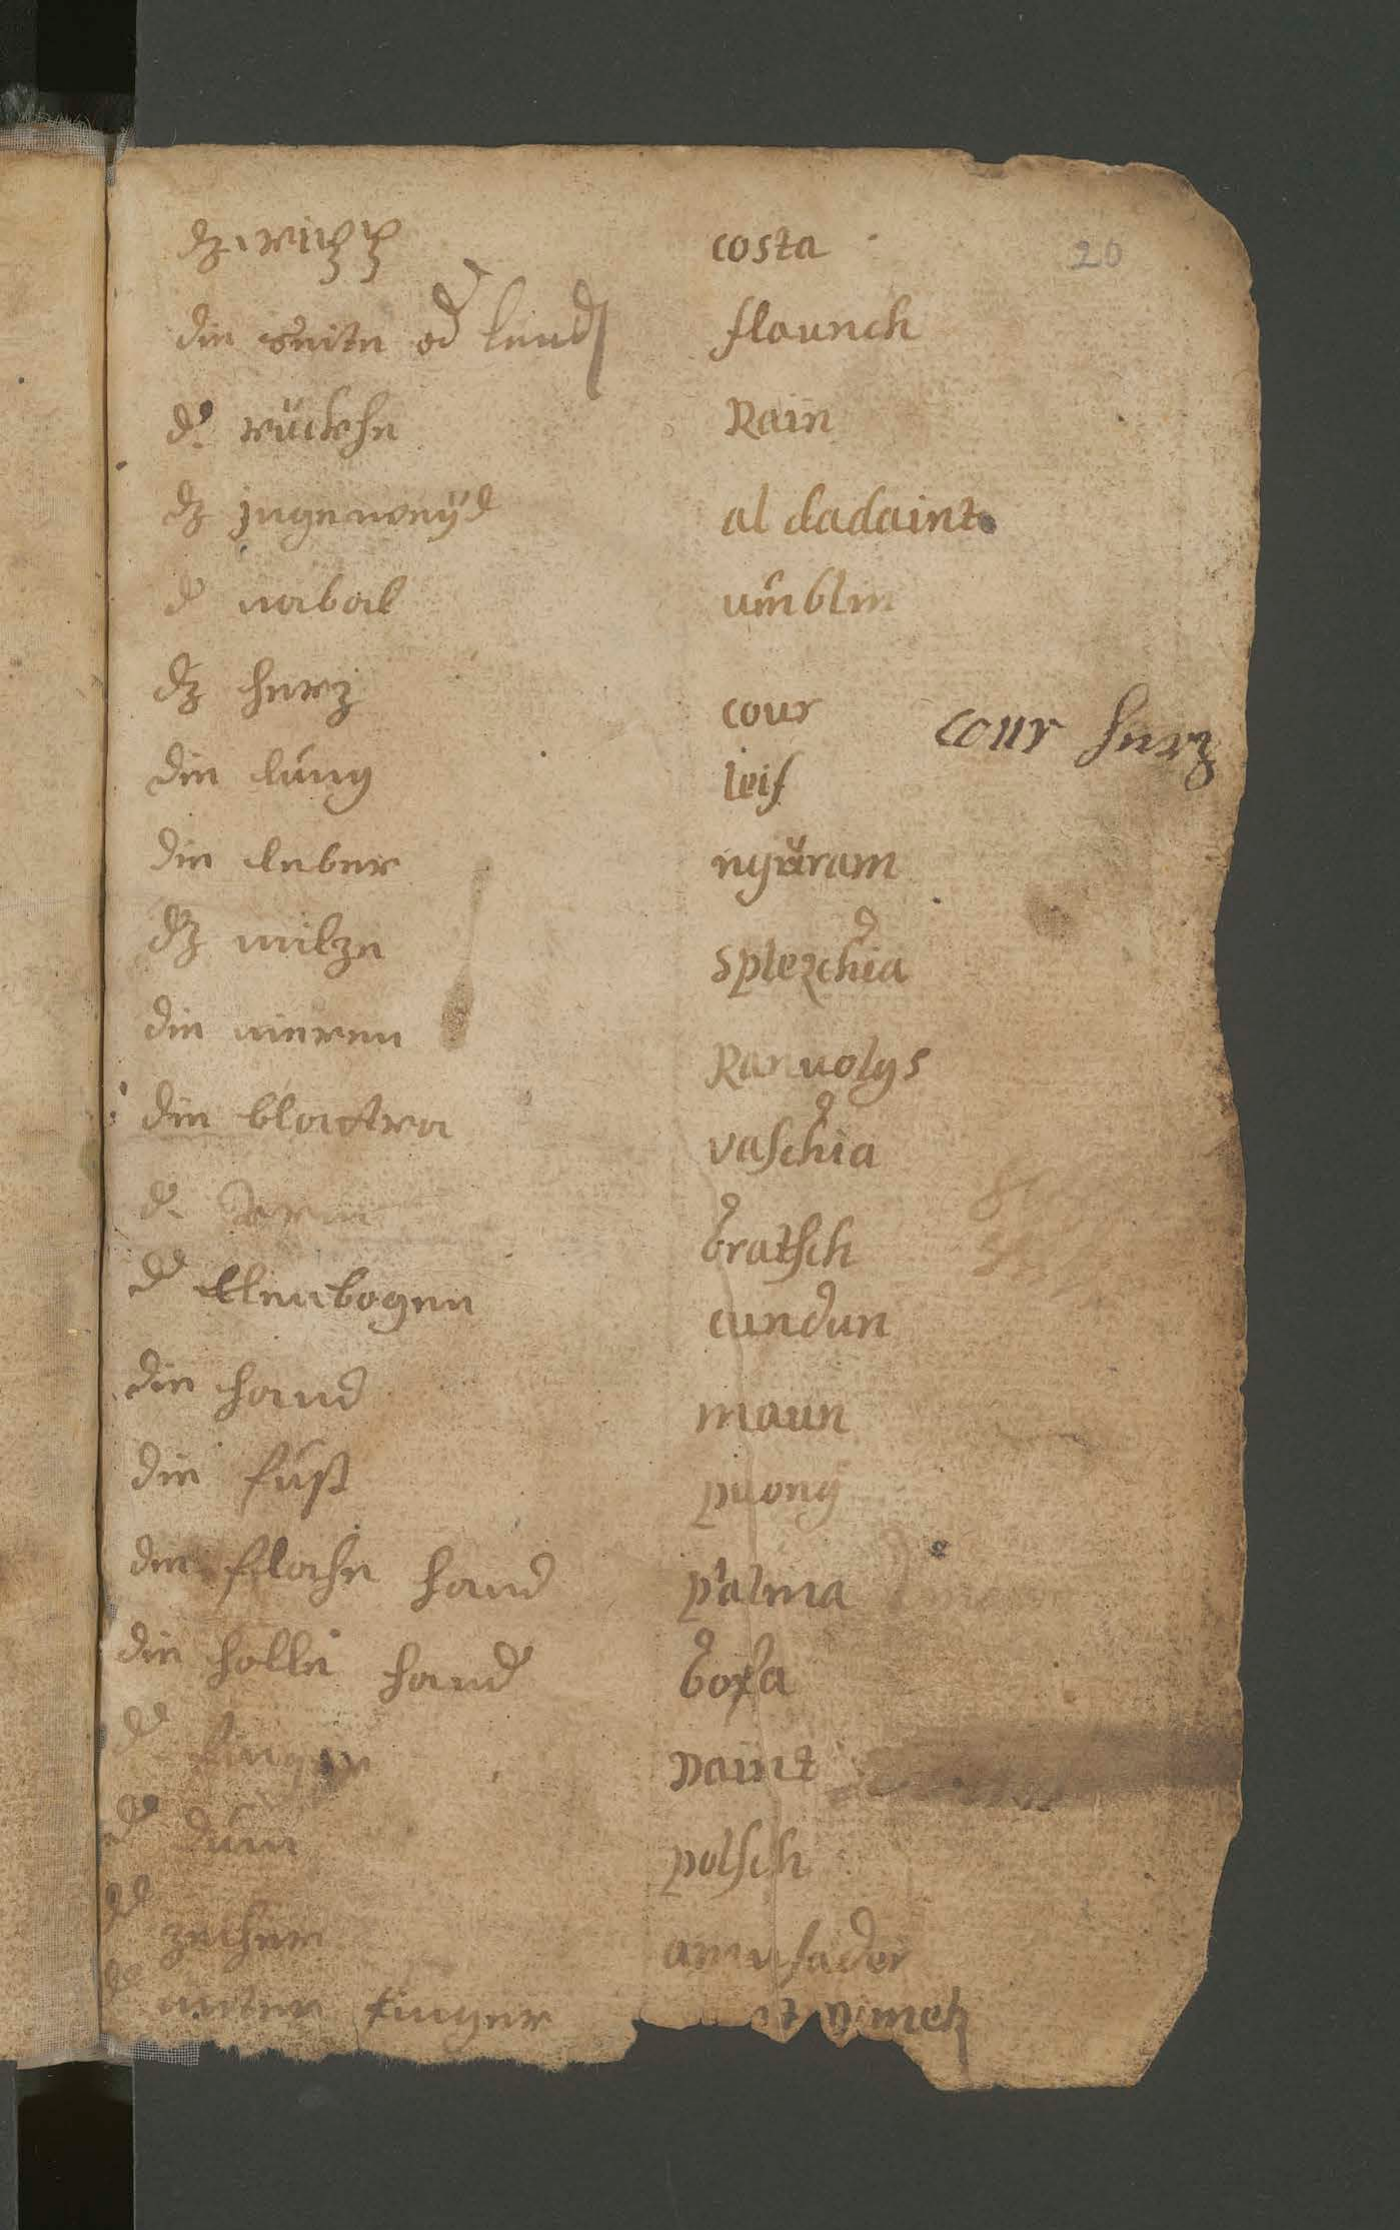 20
dz ripp costa
die seite od lend flaunch
de ruckhe Rain
dz jngeweyd al dadaint
de nabal umblin
dz herz cour cour herz
die lung leif
die leber nyaram
dz milze splezchia
die nieren Ranuolys
die blactra vaschia
de arm bratsch
de Elenbogen cundun
die hand maun
die fust puony
die flache hand palma
die holle hand boxa
de finger daint
de dum polsch
de zeher amusader
de miter finger dimetz